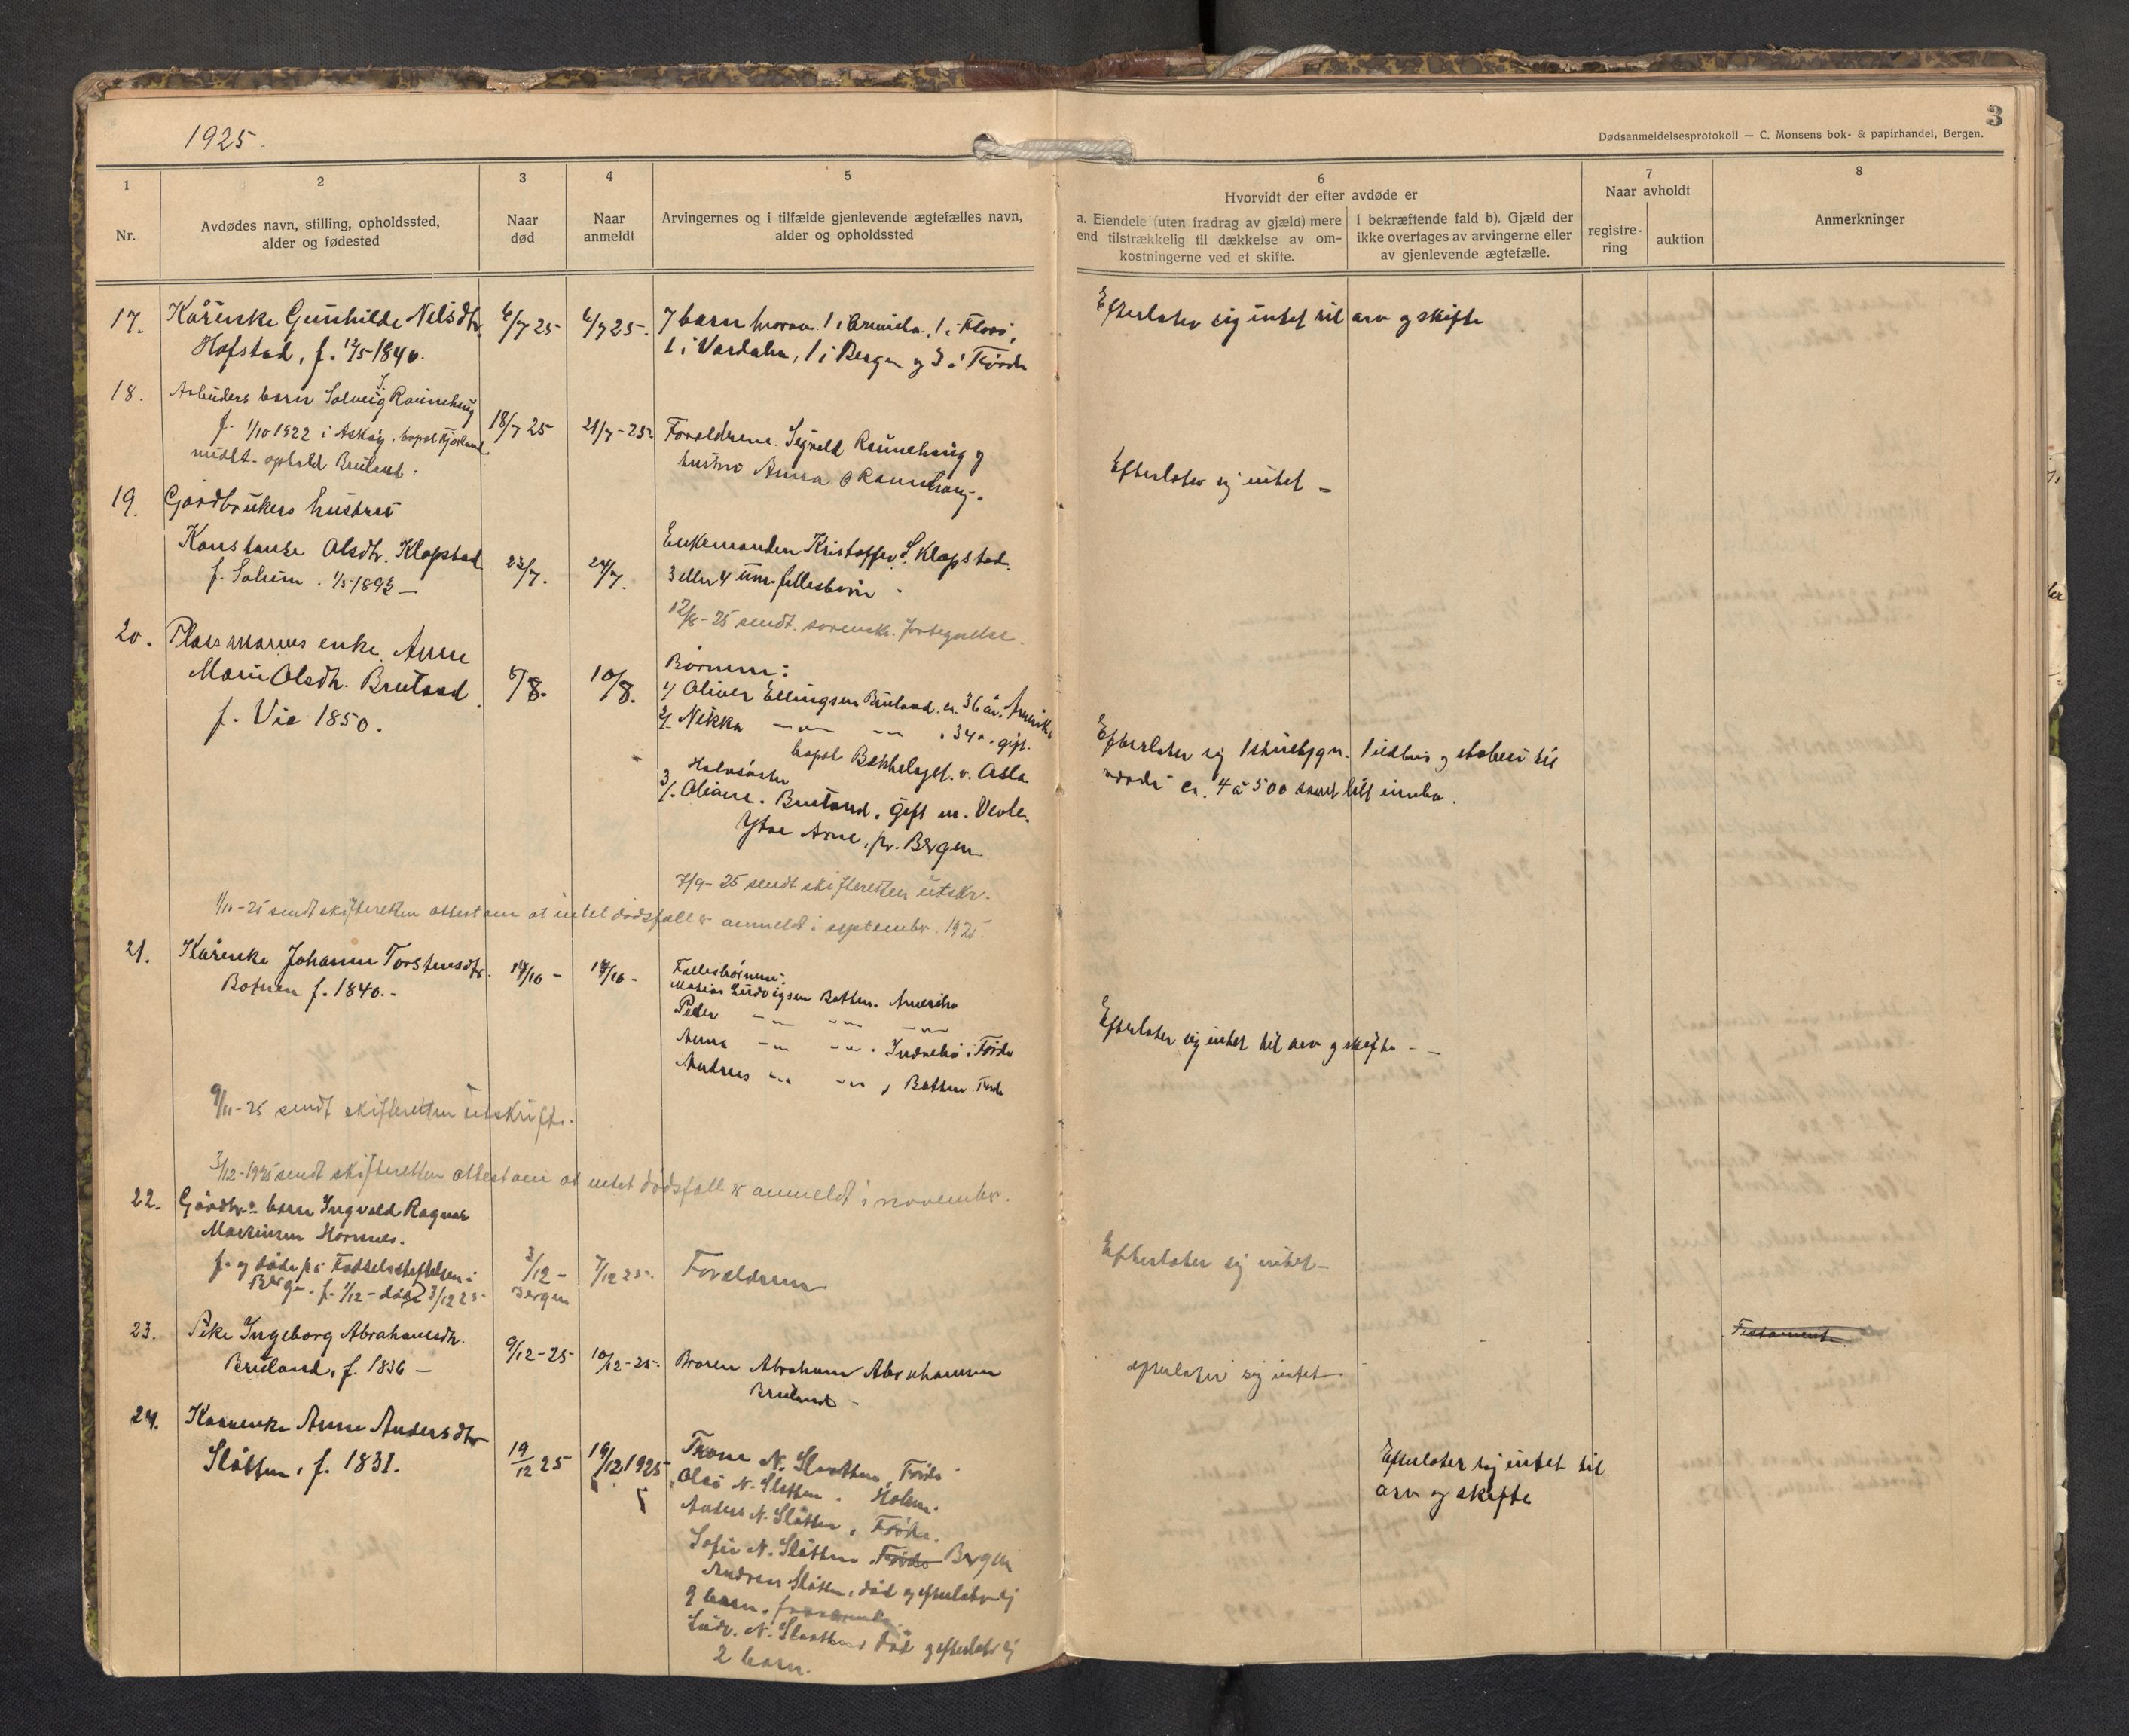 1925.
3
Dødsanmeldelsesprotokoll — C. Monsens bok- & papirhandel, Bergen.
1
Nr.
2
Avdødes navn, stilling, opholdssted,
alder og fødested
3
Naar
død
4
Naar
anmeldt
5
Arvingernes og i tilfælde gjenlevende ægtefælles navn,
alder og opholdssted
6
Hvorvidt der efter avdøde er
a. Eiendele (uten fradrag av gjæld) mere
end tilstrækkelig til dækkelse av om-
kostningerne ved et skifte.
I bekræftende fald b). Gjæld der
ikke overtages av arvingerne eller
av gjenlevende ægtefælle.
7
Naar avholdt
registre-
ring
auktion
8
Anmerkninger
17.
Kårenke Gunhilde Nelsdtr.
Hofstad, f. 12/5 1840.
6/7 25
6/7 25.
7 barn hvorav 1 i Amerika, 1 i Florø,
1 i Vardalen, 1 i Bergen og 3 i Førde
Efterlater sig intet til arv og skifte
18.
Arbeiders barn Solveig Raunehaug
f. 1/10 1922 i Askøy, bopel Fjørland
midlt. ophold Bruland.
18/7 25
21/7-25.
Foreldrene Sigvald Raunehaug og
hustru Anna Raunehaug.
Efterlater sig intet -
19.
Gårdbrukers hustru
Konstanse Olsdtr. Klopstad
f. Solheim. 1/5 1892 -
23/7.
24/7.
Enkemanden Kristoffer S. Klopstad.
3 eller 4 um. fellesbørn -
12/8-25 sendt sorensk. fortegnelse.
20.
Plassmanns enke Anne
Marie Olsdtr. Bruland
f. Vie 1850.
5/8.
10/8.
Børnene:
1/ Oliver Ellingsen Bruland. ca. 36 år. Amerika
2/ Nikka -"- -"- . 34 ". gift.
bopel Bekkelaget v. Oslo
Halvsøster
3/. Oliane. Bruland, gift m. Vevle.
Ytre Arne, pr. Bergen
Efterlater sig 1 stuebygn. 1 eldhus og stabur til
verdi ca. 4 a 500 samt litt innbo.
7/9-25 sendt skifteretten utskr.
1/10-25 sendt skifteretten attest om at intet dødsfall er anmeldt i september. 1925
21.
Kårenke Johanne Torsteinsdtr.
Botnen f. 1840.-
14/10 -
17/10 -
Fellesbørnene:
Matias Ludvigsen Botnen. Amerika
Peder -"- -"- -"-
Anna -"- -"- . Indrebø i Førde
Andreas -"- -"- , Botnen Førde
Efterlater sig intet til arv og skifte - -
9/11-25 sendt skifteretten utskrift.
3/12-1925 sendt skifteretten attest om at intet dødsfall er anmeldt i november.
22.
Gårdbr.s barn Ingvald Ragnar
Martinsen Hornnes.
f. og døde på Fødselsstiftelsen i
Bergen. f. 1/12 - død 3/12 25
3/12 -
Bergen
7/12 25.
Foreldrene
Efterlater sig intet -
23.
Pike Ingeborg Abrahamsdtr.
Bruland, f. 1836 -
9/12-25
10/12-25.
Broren Abraham Abrahamsen
Bruland -
efterlater sig intet
Testament
24.
Kårenke Anne Andersdtr
Slåtten, f. 1831.
19/12 25
19/12 1925
Trone N. Slåtten, Førde
Olai N. Slåtten. Holsen.
Anders N. Slåtten, Førde.
Sofie N. Slåtten Førde Bergen
Andreas Slåtten, død og efterlater sig
9 barn,
Ludv. N. Slåtten død og efterlater sig
2 barn.
Efterlater sig intet til
arv og skifte